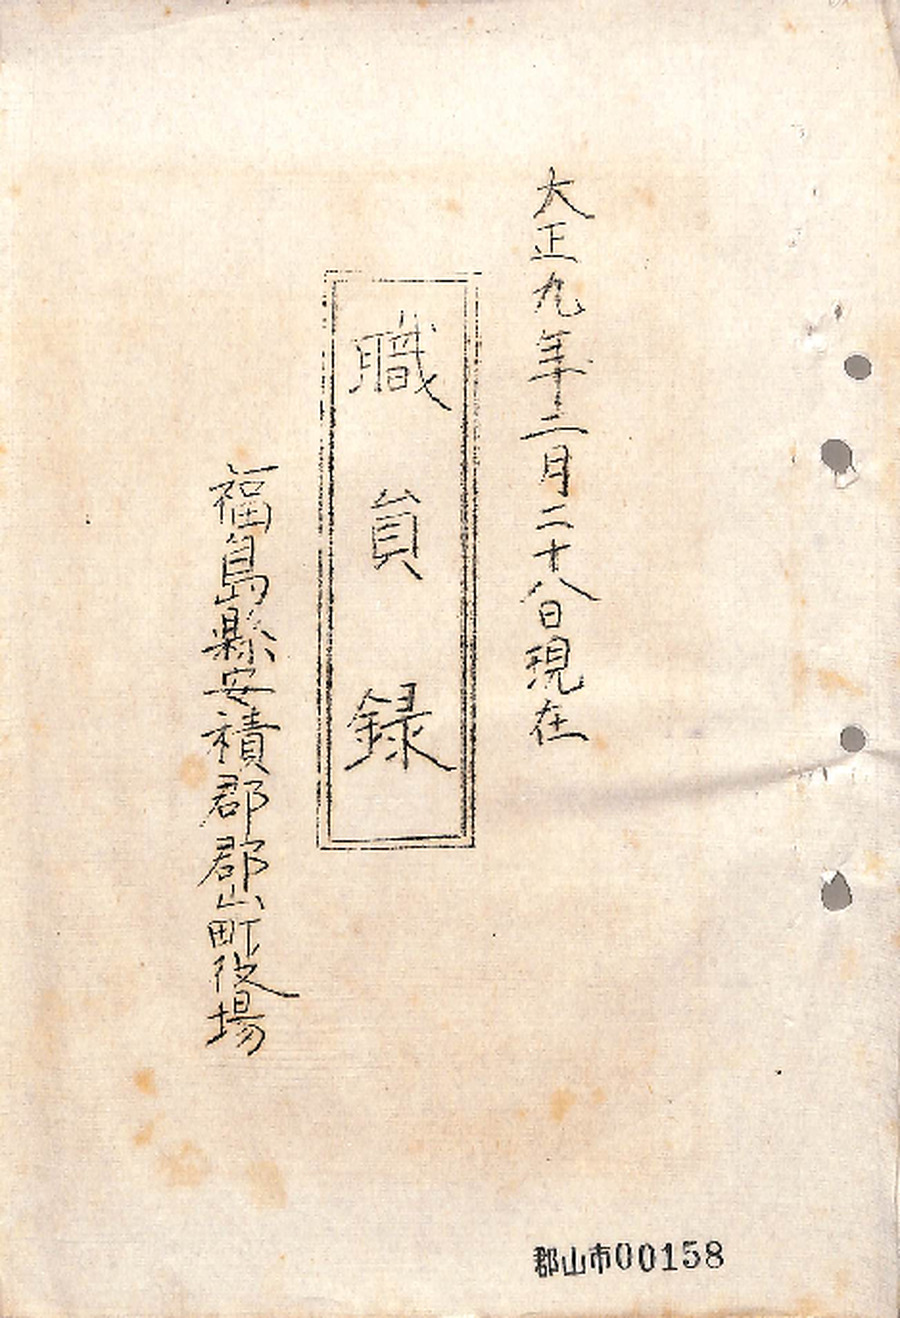 大正九年二月二十八日現在
職員録
福島縣安積郡郡山町役場
郡山市00158